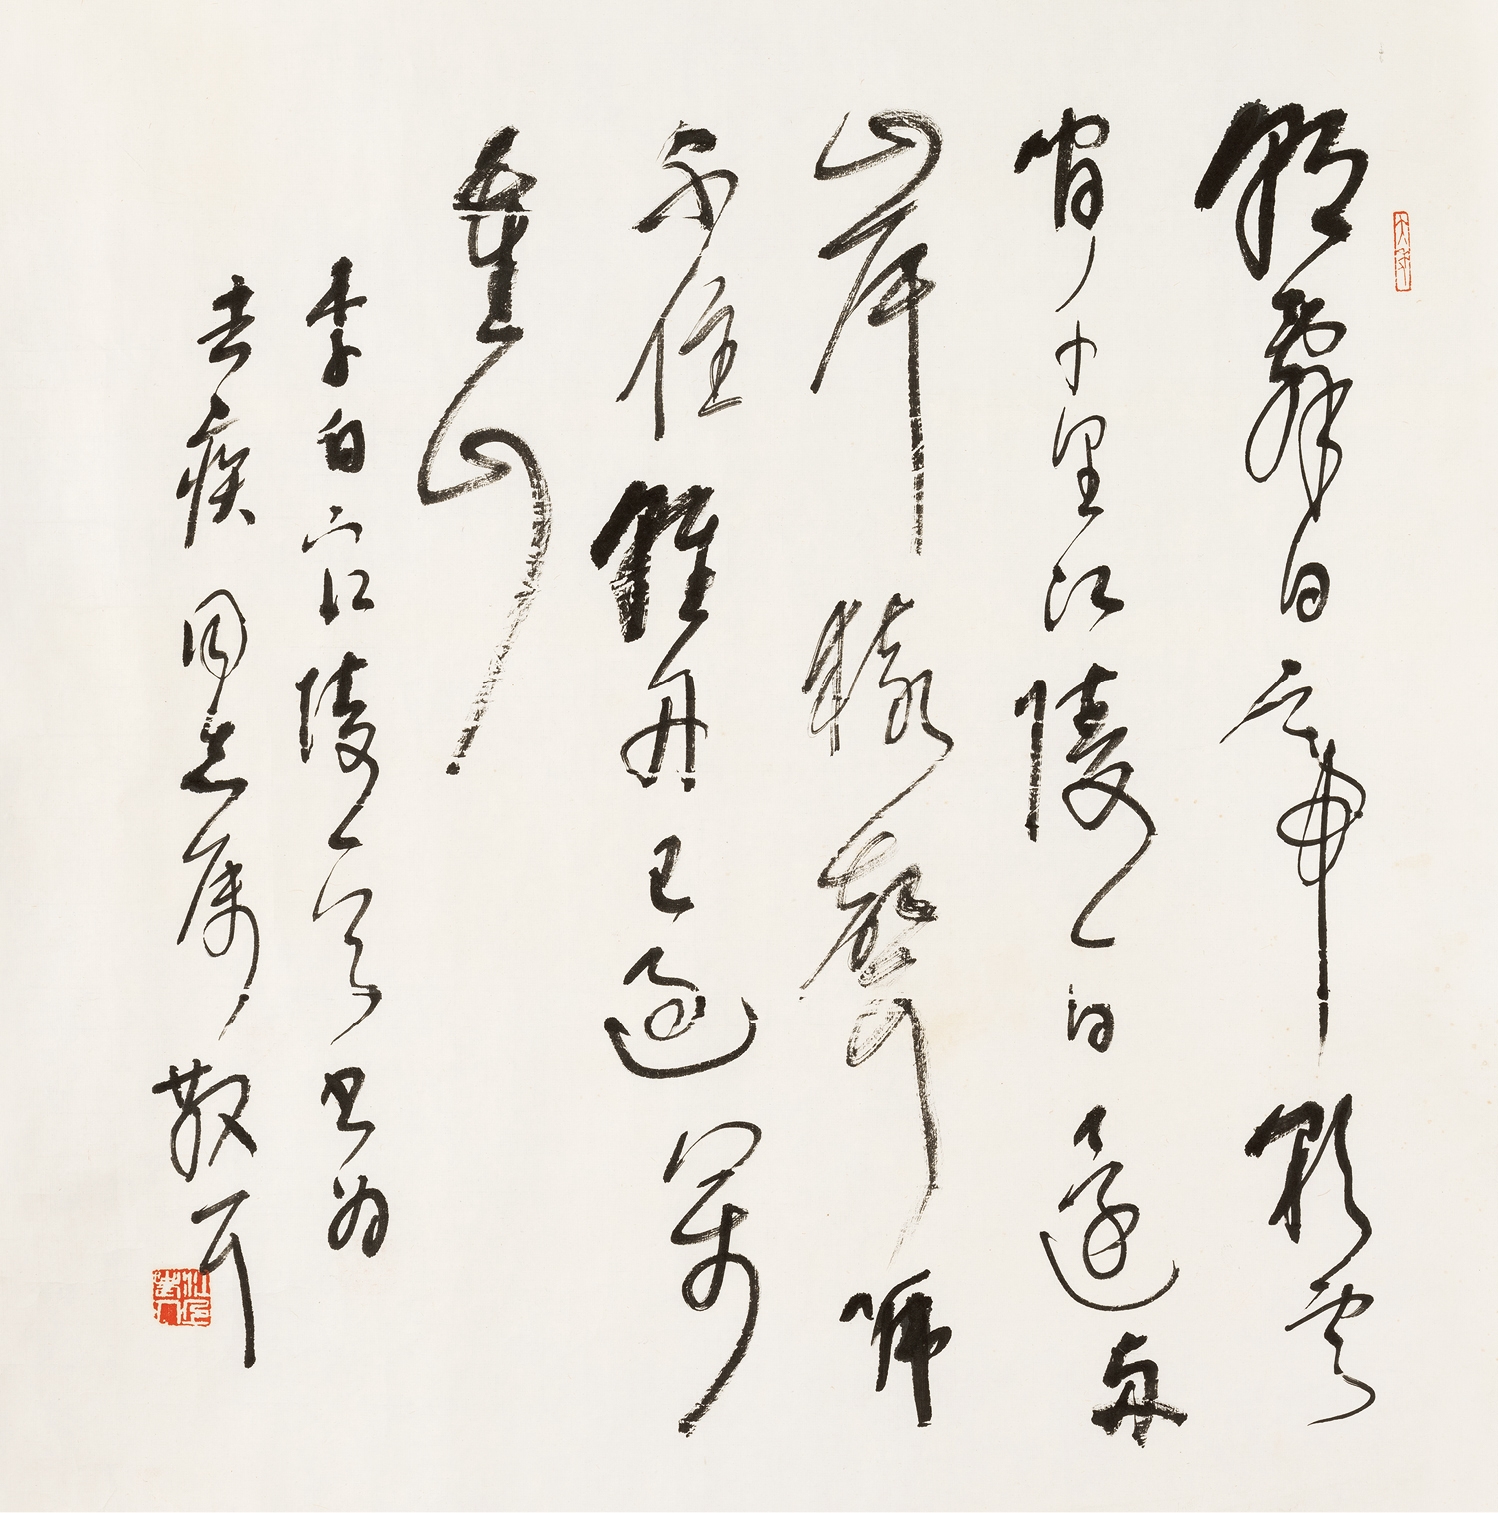 朝辭白帝彩雲
間千里江陵一日還兩
岸猿聲啼
不住輕舟已過萬
重山
李白下江陵一首書為
去疾同志屬散耳